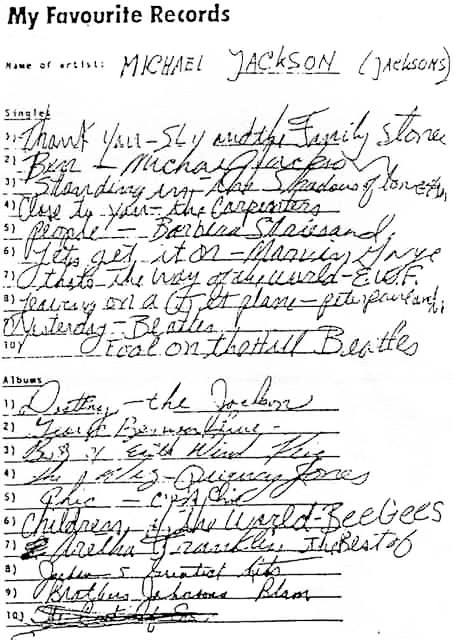 My Favourite Records
Name of artist: MICHAEL JACKSON (JACKSONS)
Singles
1) Thank You - Sly and the Family Stone
2) Ben - Michael Jackson
3) Standing in the Shadows of love
4) Close to you - the Carpenters
5) People - Barbra Streisand
6) Lets get it on - Marvin Gaye
7) thats the way of the world - E.W.F.
8) Leaving on a Jet plane - peter paul and
9) Yesterday - Beatles
10) Fool on the Hill Beatles
Albums
1) Destiny - the Jackson
2) George Benson Live -
3) of Earth Wind Fire
4) the Wiz - Quincy Jones
5) Chic - Chic
6) Children of the World - Bee Gees
7) Aretha Franklin The Best of
8) Jackson 5 Greatest hits
9) Brothers Johnsons Blam
10)